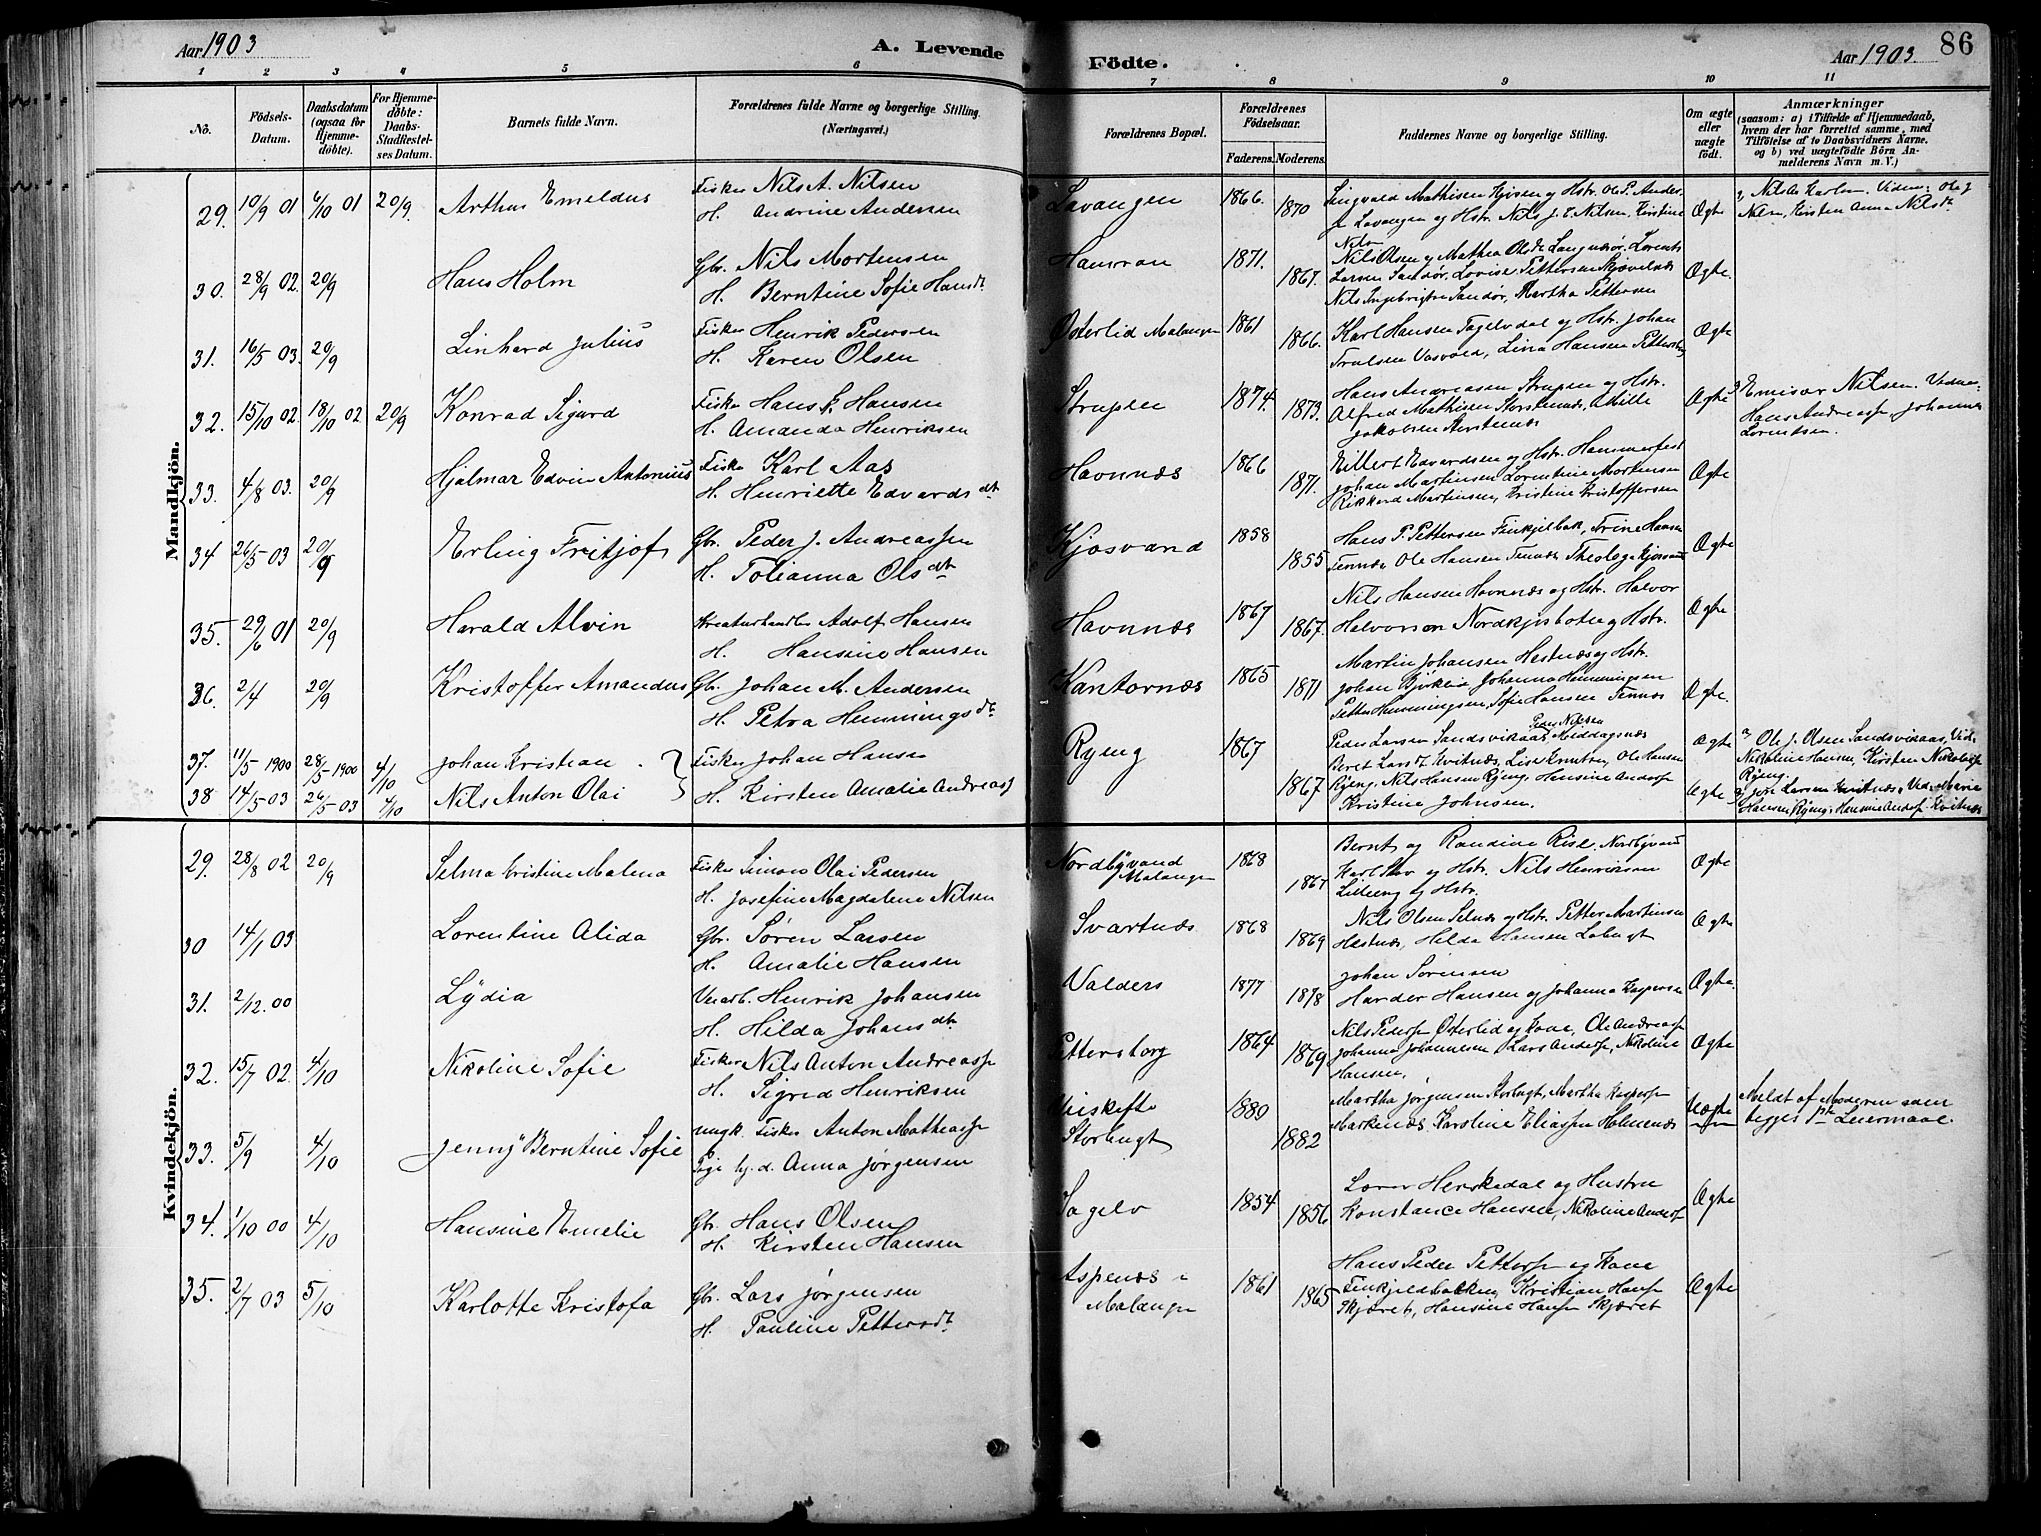 Aar 1903
A. Levende
Födte.
Aar 1903.
86
1 2 3 4 5 6 7 8 9 10 11
No.
Födsels-
Datum.
Daabsdatum
(ogsaa for
Hjemme-
döbte).
For Hjemme-
döbte:
Daabs-
Stadfestel-
ses Datum.
Barnets fulde Navn.
Forældrenes fulde Navne og borgerlige Stilling.
(Næringsvei.)
Forældrenes Bopæl.
Forældrenes
Födselsaar.
Faderens. Moderens.
Faddernes Navne og borgerlige Stilling.
Om ægte
eller
uægte
födt.
Anmærkninger
(saasom: a) i Tilfælde af Hjemmedaab,
hvem der har forrettet samme, med
Tilföielse af to Daabsvidners Navne,
og b) ved uægtefödte Börn An-
melderens Navn m. V.)
Mandkjön.
29. 10/9 01 6/10 01 20/9. Arthur Emeldus Fisker Nils A. Nilsen
H. Andrine Andersen
Lavangen 1866. 1870 Ægte
30. 28/9 02. 20/9 Hans Holm Gbr. Nils Mortensen
H. Berntine Sofie Hansdt.
1871. 1867. Nils Olsen og Mathea Olsdt. Lorents
Larsen Sandør, Lovise Pettersen
Nils Ingebrigtsen Sandør, Martha Pettersen
Ægte.
31. 16/5 03. 20/9 Linhard Julius Fisker Henrik Pedersen
H. Karen Olsen
Østerlid Malangen 1861 1866. Karl Hansen Tagelvdal og Hstr. Johan
Trulsen Lina Hansen
Ægte
32. 15/10 02. 18/10 02 20/9 Konrad Sigurd Fisker Hans P. Hansen
H. Amanda Henriksen
Strupen 1874. 1873. Hans Andreasen Strupen og Hstr.
Alfred Mathisen Storstennæs, Mille
Jakobsen Storstennæs
Ægte Nilsen. Vidne:
Hans Andreassen Johannes
Lorentsen.
33. 4/8 03. 20/9 Hjalmar Edvin Antonius Fisker Karl Aas
H. Henriette Edvardsdt
Havnnæs 1866 1871. Eillert Edvardsen og Hstr. Hammerfest
Johan Martinsen Lorentine Mortensen
Rikkard Martinsen, Kristine Kristoffersen
Ægte
34 26/5 03 20/9 Erling Fritjof Gbr. Peder J. Andreassen
H. Tolianna Olsdt
Kjosvand 1858 1855 Hans P. Pettersen Finkjelbak, Trine Hansen
Tennæs Ole Hansen Tennæs
Ægte
35. 29/6 01 20/9 Harald Alvin Kreaturhandler Adolf Hansen
H. Hansine Hansen
Havnnæs 1867 1867. Nils Hansen Havnnæs og Hstr. Halvor
Halvorsen Nordkjosboten og Hstr.
Ægte
36. 2/4 20/9 Kristoffer Amandus Gbr. Johan M. Andersen
H. Petra Hemmingsdt.
Kantornæs 1865 1871 Martin Johansen Hestnæs og Hstr.
Johan Bjørklid Johanna Hemmingsen
Petter Hemmingsen, Sofie Hansen Tennæs
Ægte.
37. 11/5 1900 28/5 1900 4/10 Johan Kristian Fisker Johan Hansen
38 14/5 03 26/5 03 4/10 Nils Anton Olai H. Kirsten Amalie Andreass
Ryeng 1867 1867 Peder Larsen Sandsvikaas, Peder Nilsen Meddagsnæs
Beret Larsdt. Kvitnæs, Lise Knutsen, Ole Hansen
Ryeng, Nils Hansen Ryeng, Hansine Anders
Kristine Johnsen.
Ægte a) Ole J. Olsen Sandsvikaas, Vid.
Nikoline Hansen, Kirsten Nikolaiss
Ryeng.
Ægte Larsen Kvitnæs. Vid. Marie
Hansen Ryeng, Hansine Anders Kvitnæs
Kvindekjön.
29. 28/8 02 20/9 Selma Kristine Malena Fisker Simon Olai Pedersen
H. Josefine Magdalene Nilsen
Nordbyvand
Malangen
1868 1867 Bernt og Randine Rise, Nordbyvand
Karl og Hstr. Nils Henriksen
Lilleeng og Hstr.
Ægte
30 14/1 03 Lorentine Alida Gbr. Søren Larsen
H. Amalie Hansen
Svartnæs 1868 1869 Nils Olsen Selnæs og Hstr. Petter Martinsen
Hestnæs, Hilda Hansen
Ægte
31. 2/12 00 Lÿdia Henrik Johansen
H. Hilda Johansdt.
Valders 1877 1878 Johan Sørensen
Harder Hansen og Johanna Kaspersen
Ægte.
32. 15/7 02. 4/10 Nikoline Sofie Fisker Nils Anton Andreass
H. Sigrid Henriksen
Petterstorg 1864 1869 Nils Peders Østerlid og Kone, Ole Andreass
Johanna Johannesen, Lars Anders, Nikoline
Hansen.
Ægte
33. 5/9 4/10 Jenny Berntine Sofie ungk. Fisker Anton Matheass
Pige Anna Jørgensen
Storbugt
1880 1882 Martha Jørgensen Storbugt, Martha Kaspers
Markenæs, Karoline Eliassen Holmenæs
Uægte Meldt af Moderen som
begges 1ste Leiermaal.
34. 1/10 00 4/10 Hansine Emelie Gbr. Hans Olsen
H. Kirsten Hansen
Sagelv 1854 1856 og Hustru
Konstance Hansen, Nikoline Anders
Ægte
35. 2/7 03 5/10 Karlotte Kristofa Gbr. Lars Jørgensen
H. Pauline Pettersdt.
Aspenæs i
Malangen
1861 1865 Hans Peder Petters og Kone
Finkjeldbakken, Kristian Hans
Skjæret, Hansine Hans Skjæret
Ægte